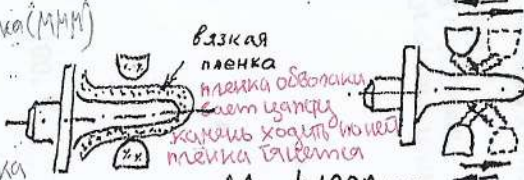 ка(МММ)
вязкая
пленка
пленка обволаки
вает цапфу
камень ходить по ней
плёнка тянется
ка